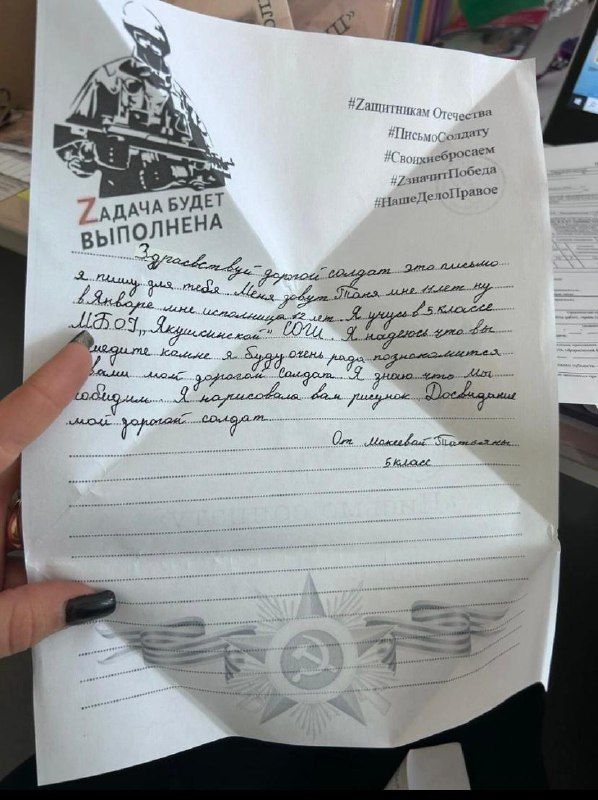 #Zащитникам Отечества
#ПисьмоСолдату
#Своихнебросаем
#ZзначитПобеда
#НашеДелоПравое
ZАДАЧА БУДЕТ
ВЫПОЛНЕНА
Здрасвствуй дорогой солдат это письмо
я пишу для тебя Меня зовут Таня мне 11 лет ну
в Январе мне исполница 12 лет. Я учусь в 5 классе
МБОУ „Якушкинской" СОШ. Я надеюсь что вы
едите камне я буду очень рада познакомится
вами мой дорогой солдат. Я знаю что мы
победим. Я нарисовала вам рисунок Досвидание
мой дорогой солдат
От Татьяны
5 класс